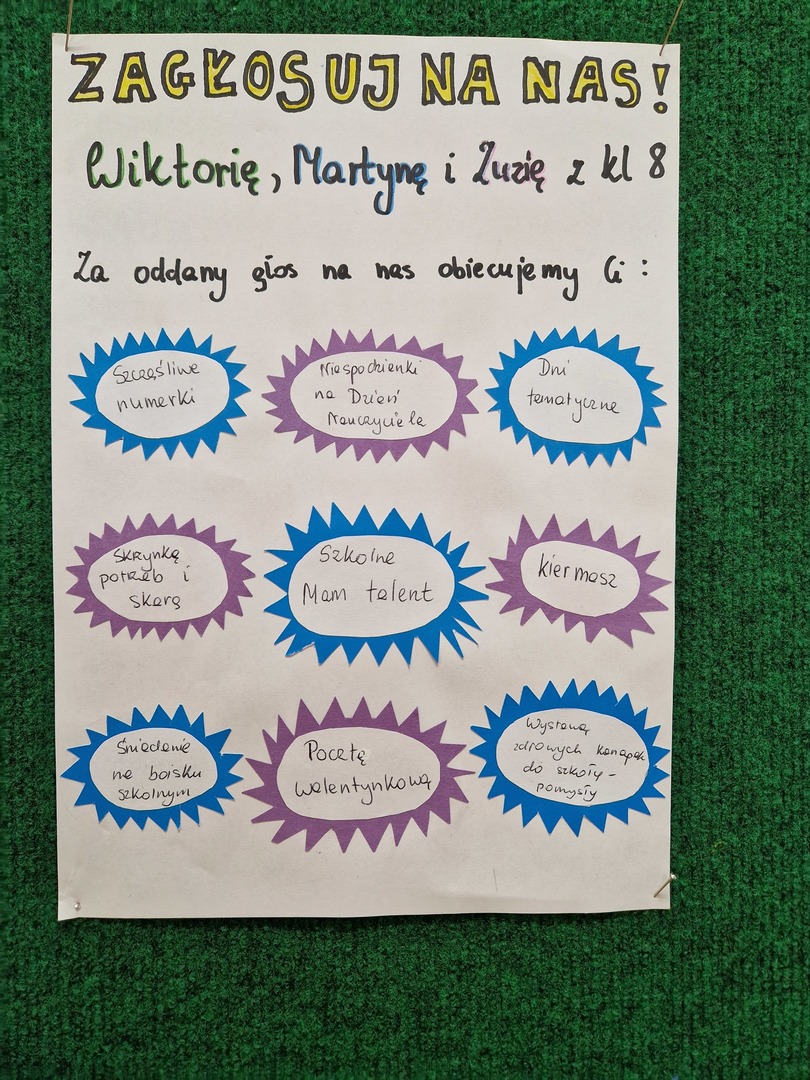 ZAGŁOSUJ NA NAS!
Wiktorię, Martynę i Zuzię z kl 8
Za oddany głos na nas obiecujemy Ci:
Szczęśliwe
numerki
Niespodzienki
na Dzień
Nauczyciela
Dni
tematyczne
Skrzynkę
potrzeb i
skarg
Szkolne
Mam talent
kiermasz
Śniadanie
na boisku
szkolnym
Pocztę
walentynkową
Wystawę
zdrowych kanapek
do szkoły -
pomysły